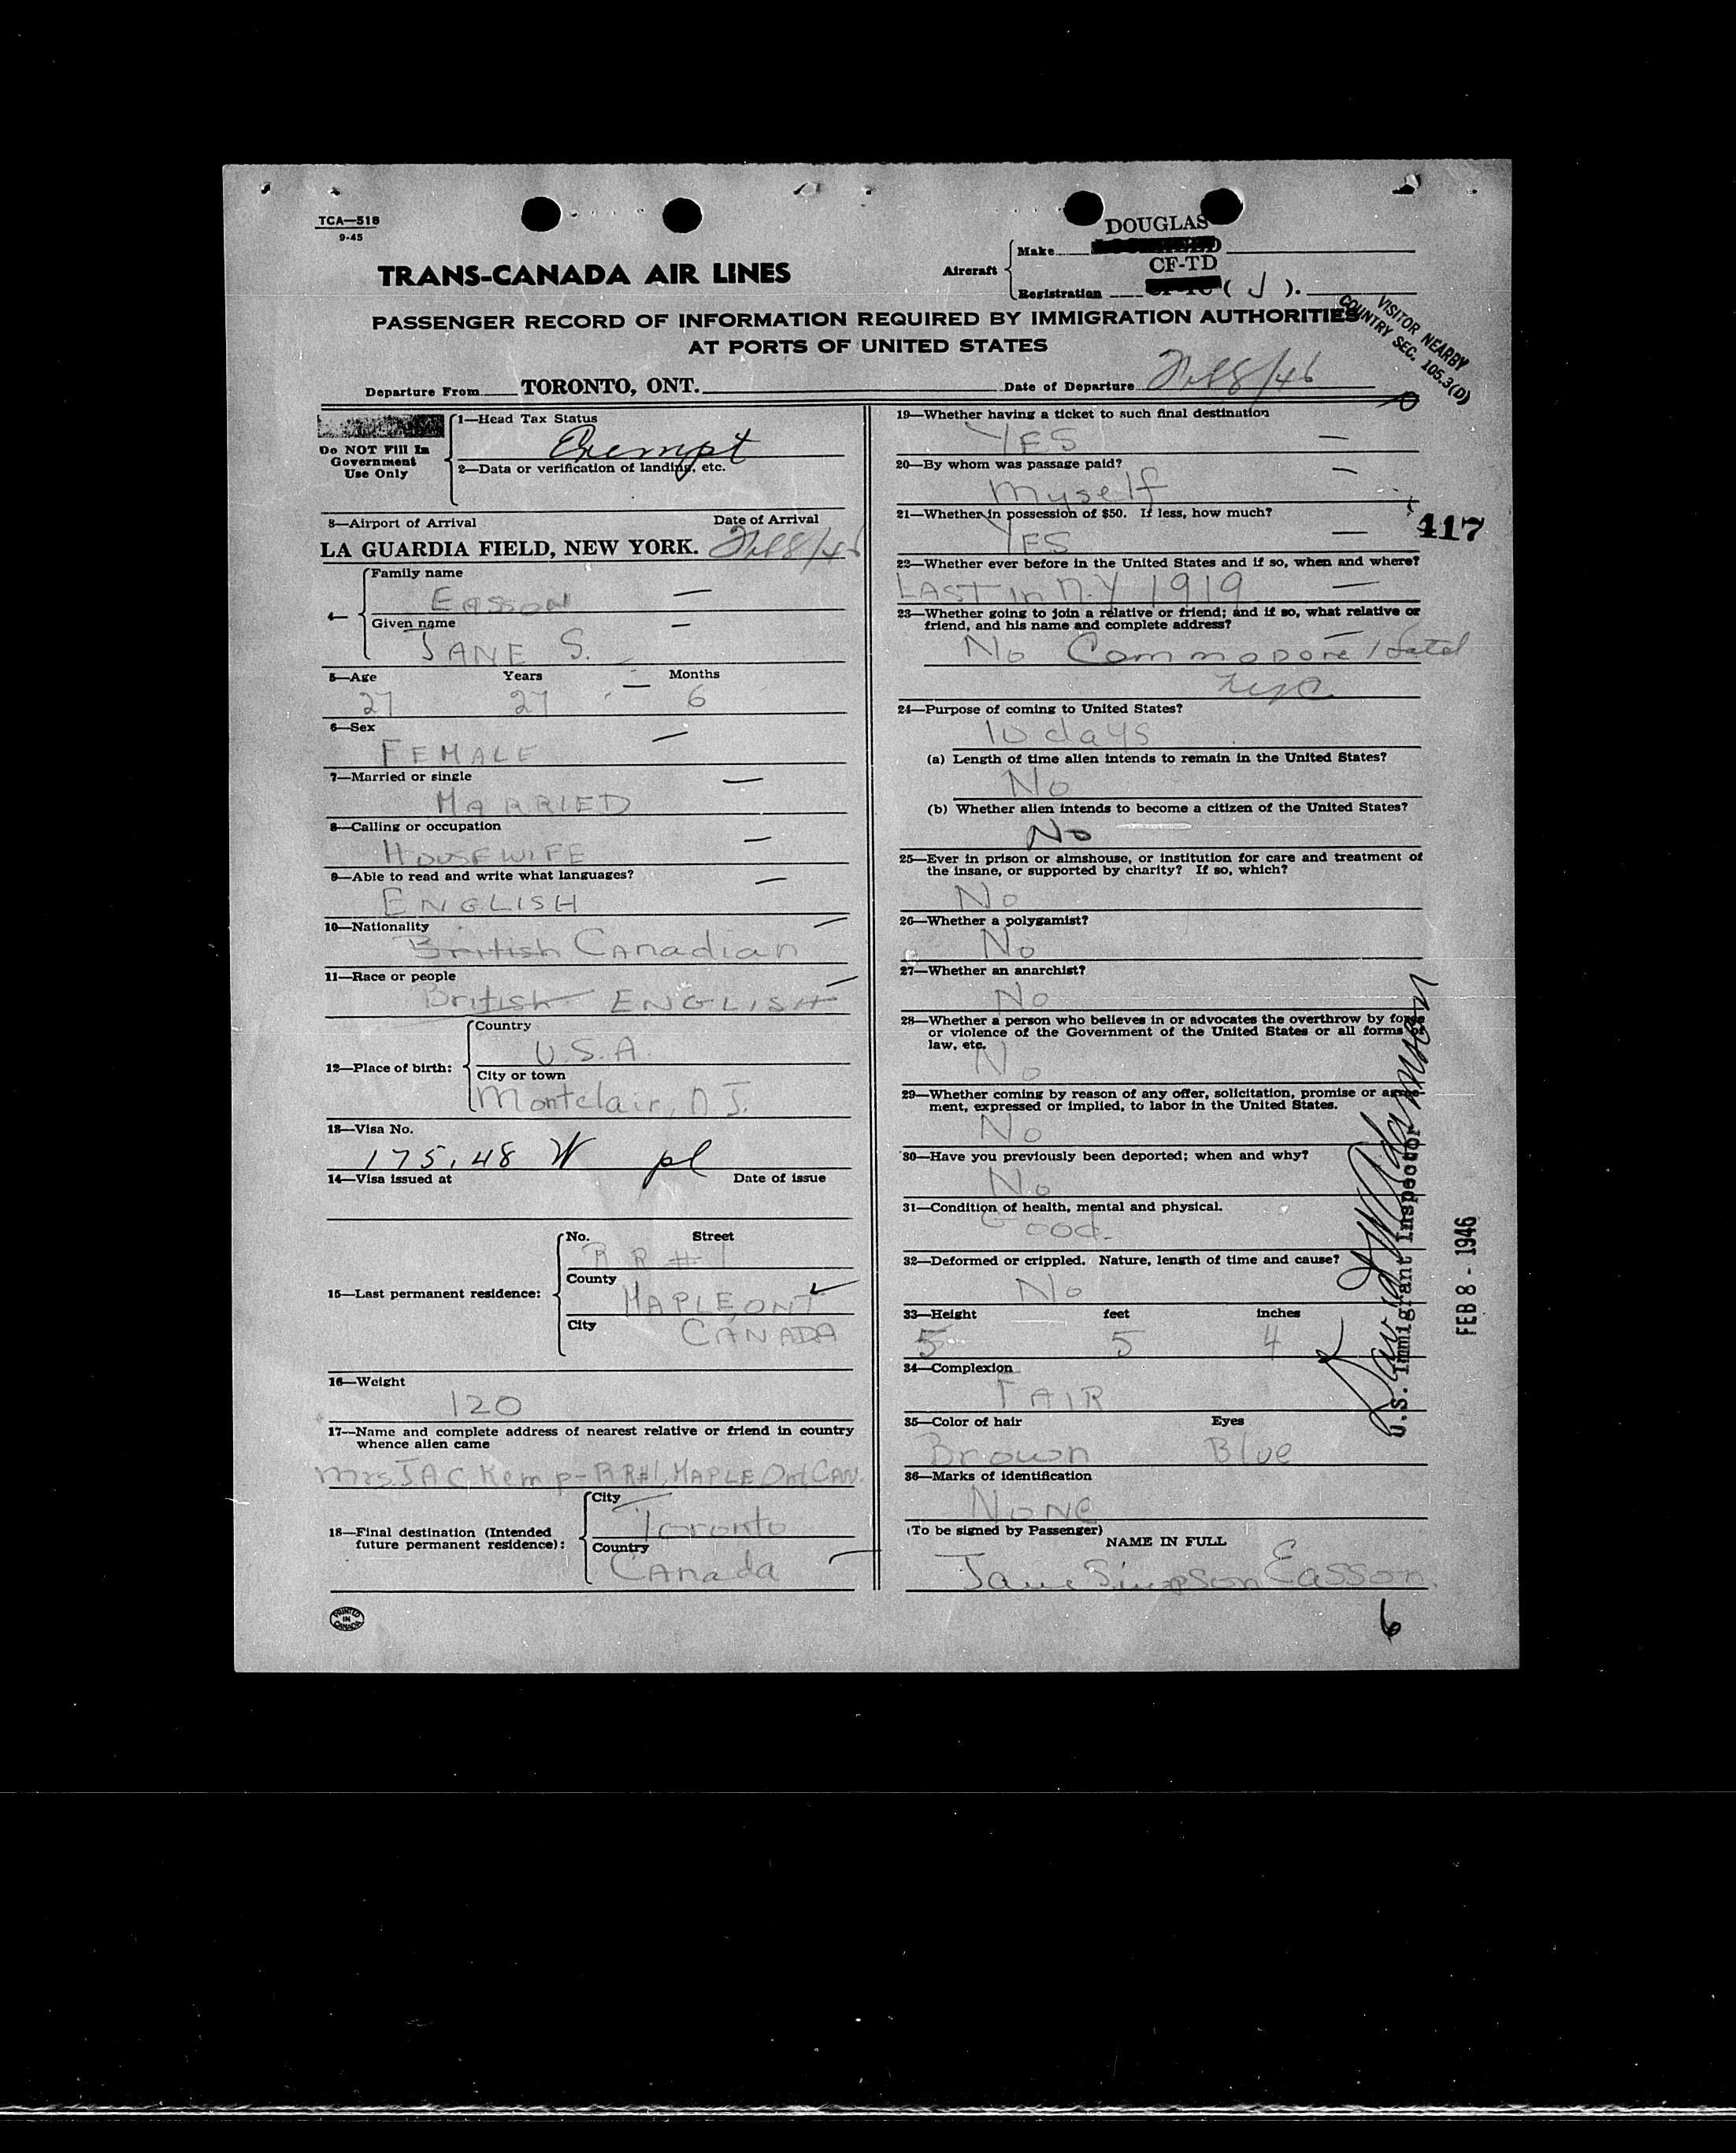 TCA—518
9-45
TRANS-CANADA AIR LINES
Aircraft
Make
DOUGLAS
Registration
CF-TD
( J ).
VISITOR NEARBY
COUNTRY SEC. 105.3(D)
PASSENGER RECORD OF INFORMATION REQUIRED BY IMMIGRATION AUTHORITIES
AT PORTS OF UNITED STATES
Departure From TORONTO, ONT. Date of Departure Feb 8/46
Do NOT Fill In
Government
Use Only
1—Head Tax Status
Exempt
2—Data or verification of landing, etc.
3—Airport of Arrival Date of Arrival
LA GUARDIA FIELD, NEW YORK. Feb 8/46
Family name
EASSON
4—
Given name
JANE S.
5—Age Years Months
27 27 6
6—Sex
FEMALE
7—Married or single
MARRIED
8—Calling or occupation
HOUSEWIFE
9—Able to read and write what languages?
ENGLISH
10—Nationality
British CANadian
11—Race or people
British ENGLISH
12—Place of birth:
Country
U.S.A.
City or town
Montclair, N.J.
13—Visa No.
175.48 W pl
14—Visa issued at Date of issue
15—Last permanent residence:
No. Street
R R # 1
County
MAPLE, ONT
City
CANADA
16—Weight
120
17—Name and complete address of nearest relative or friend in country
whence alien came
Mrs. J.A.C. Kemp - RR#1, MAPLE Ont CAN.
18—Final destination (Intended
future permanent residence):
City
Toronto
Country
CANada
19—Whether having a ticket to such final destination
YES
20—By whom was passage paid?
Myself
21—Whether in possession of $50. If less, how much?
YES
417
22—Whether ever before in the United States and if so, when and where?
LAST in N.Y 1919
23—Whether going to join a relative or friend; and if so, what relative or
friend, and his name and complete address?
No Commodore Hotel
NYC
24—Purpose of coming to United States?
10 days
(a) Length of time alien intends to remain in the United States?
No
(b) Whether alien intends to become a citizen of the United States?
No
25—Ever in prison or almshouse, or institution for care and treatment of
the insane, or supported by charity? If so, which?
No
26—Whether a polygamist?
No
27—Whether an anarchist?
No
28—Whether a person who believes in or advocates the overthrow by force
or violence of the Government of the United States or all forms of
law, etc.
No
29—Whether coming by reason of any offer, solicitation, promise or agree-
ment, expressed or implied, to labor in the United States.
No
30—Have you previously been deported; when and why?
No
31—Condition of health, mental and physical.
Good.
32—Deformed or crippled. Nature, length of time and cause?
No
33—Height feet inches
5 5 4
34—Complexion
FAIR
35—Color of hair Eyes
Brown Blue
36—Marks of identification
NONe
(To be signed by Passenger)
NAME IN FULL
Jane Simpson Easson.
U.S. Immigrant Inspector
FEB 8 - 1946
PRINTED
IN
CANADA
6